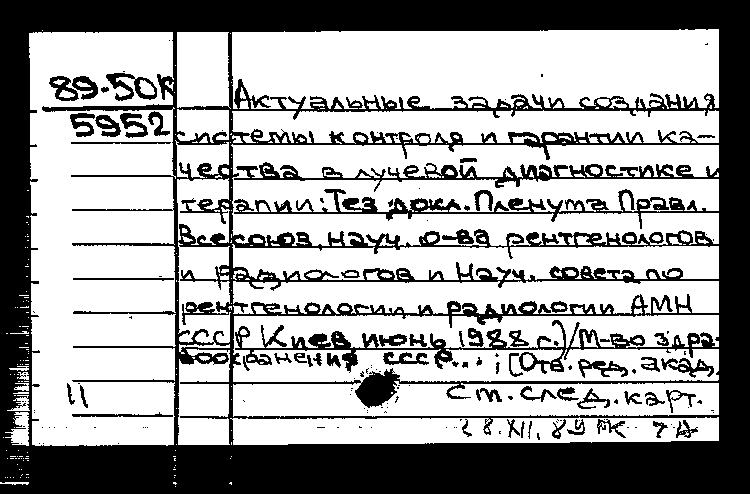 89-50К
5952
Актуальные задачи создания
системы контроля и гарантии ка-
чества в лучевой диагностике и
терапии: Тез докл. Пленума Правл.
Всесоюз. науч. о-ва рентгенологов
и радиологов и Науч. совета по
рентгенологии и радиологии АМН
СССР (Киев, июнь 1988 г.)/М-во здра-
воохранения СССР...; [Отв. ред. акад.
11
См. след. карт.
28.XII.89